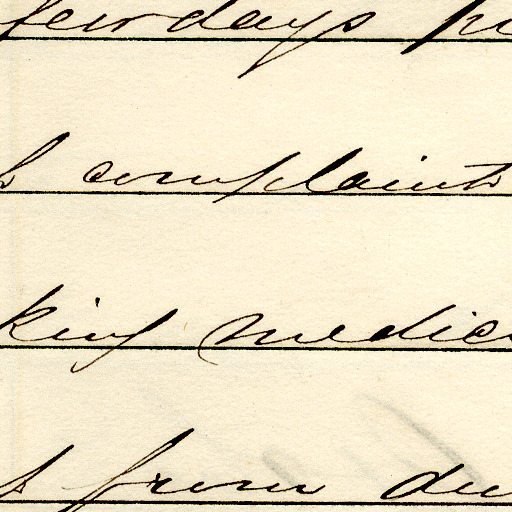 few days
complaints
king medic
from du